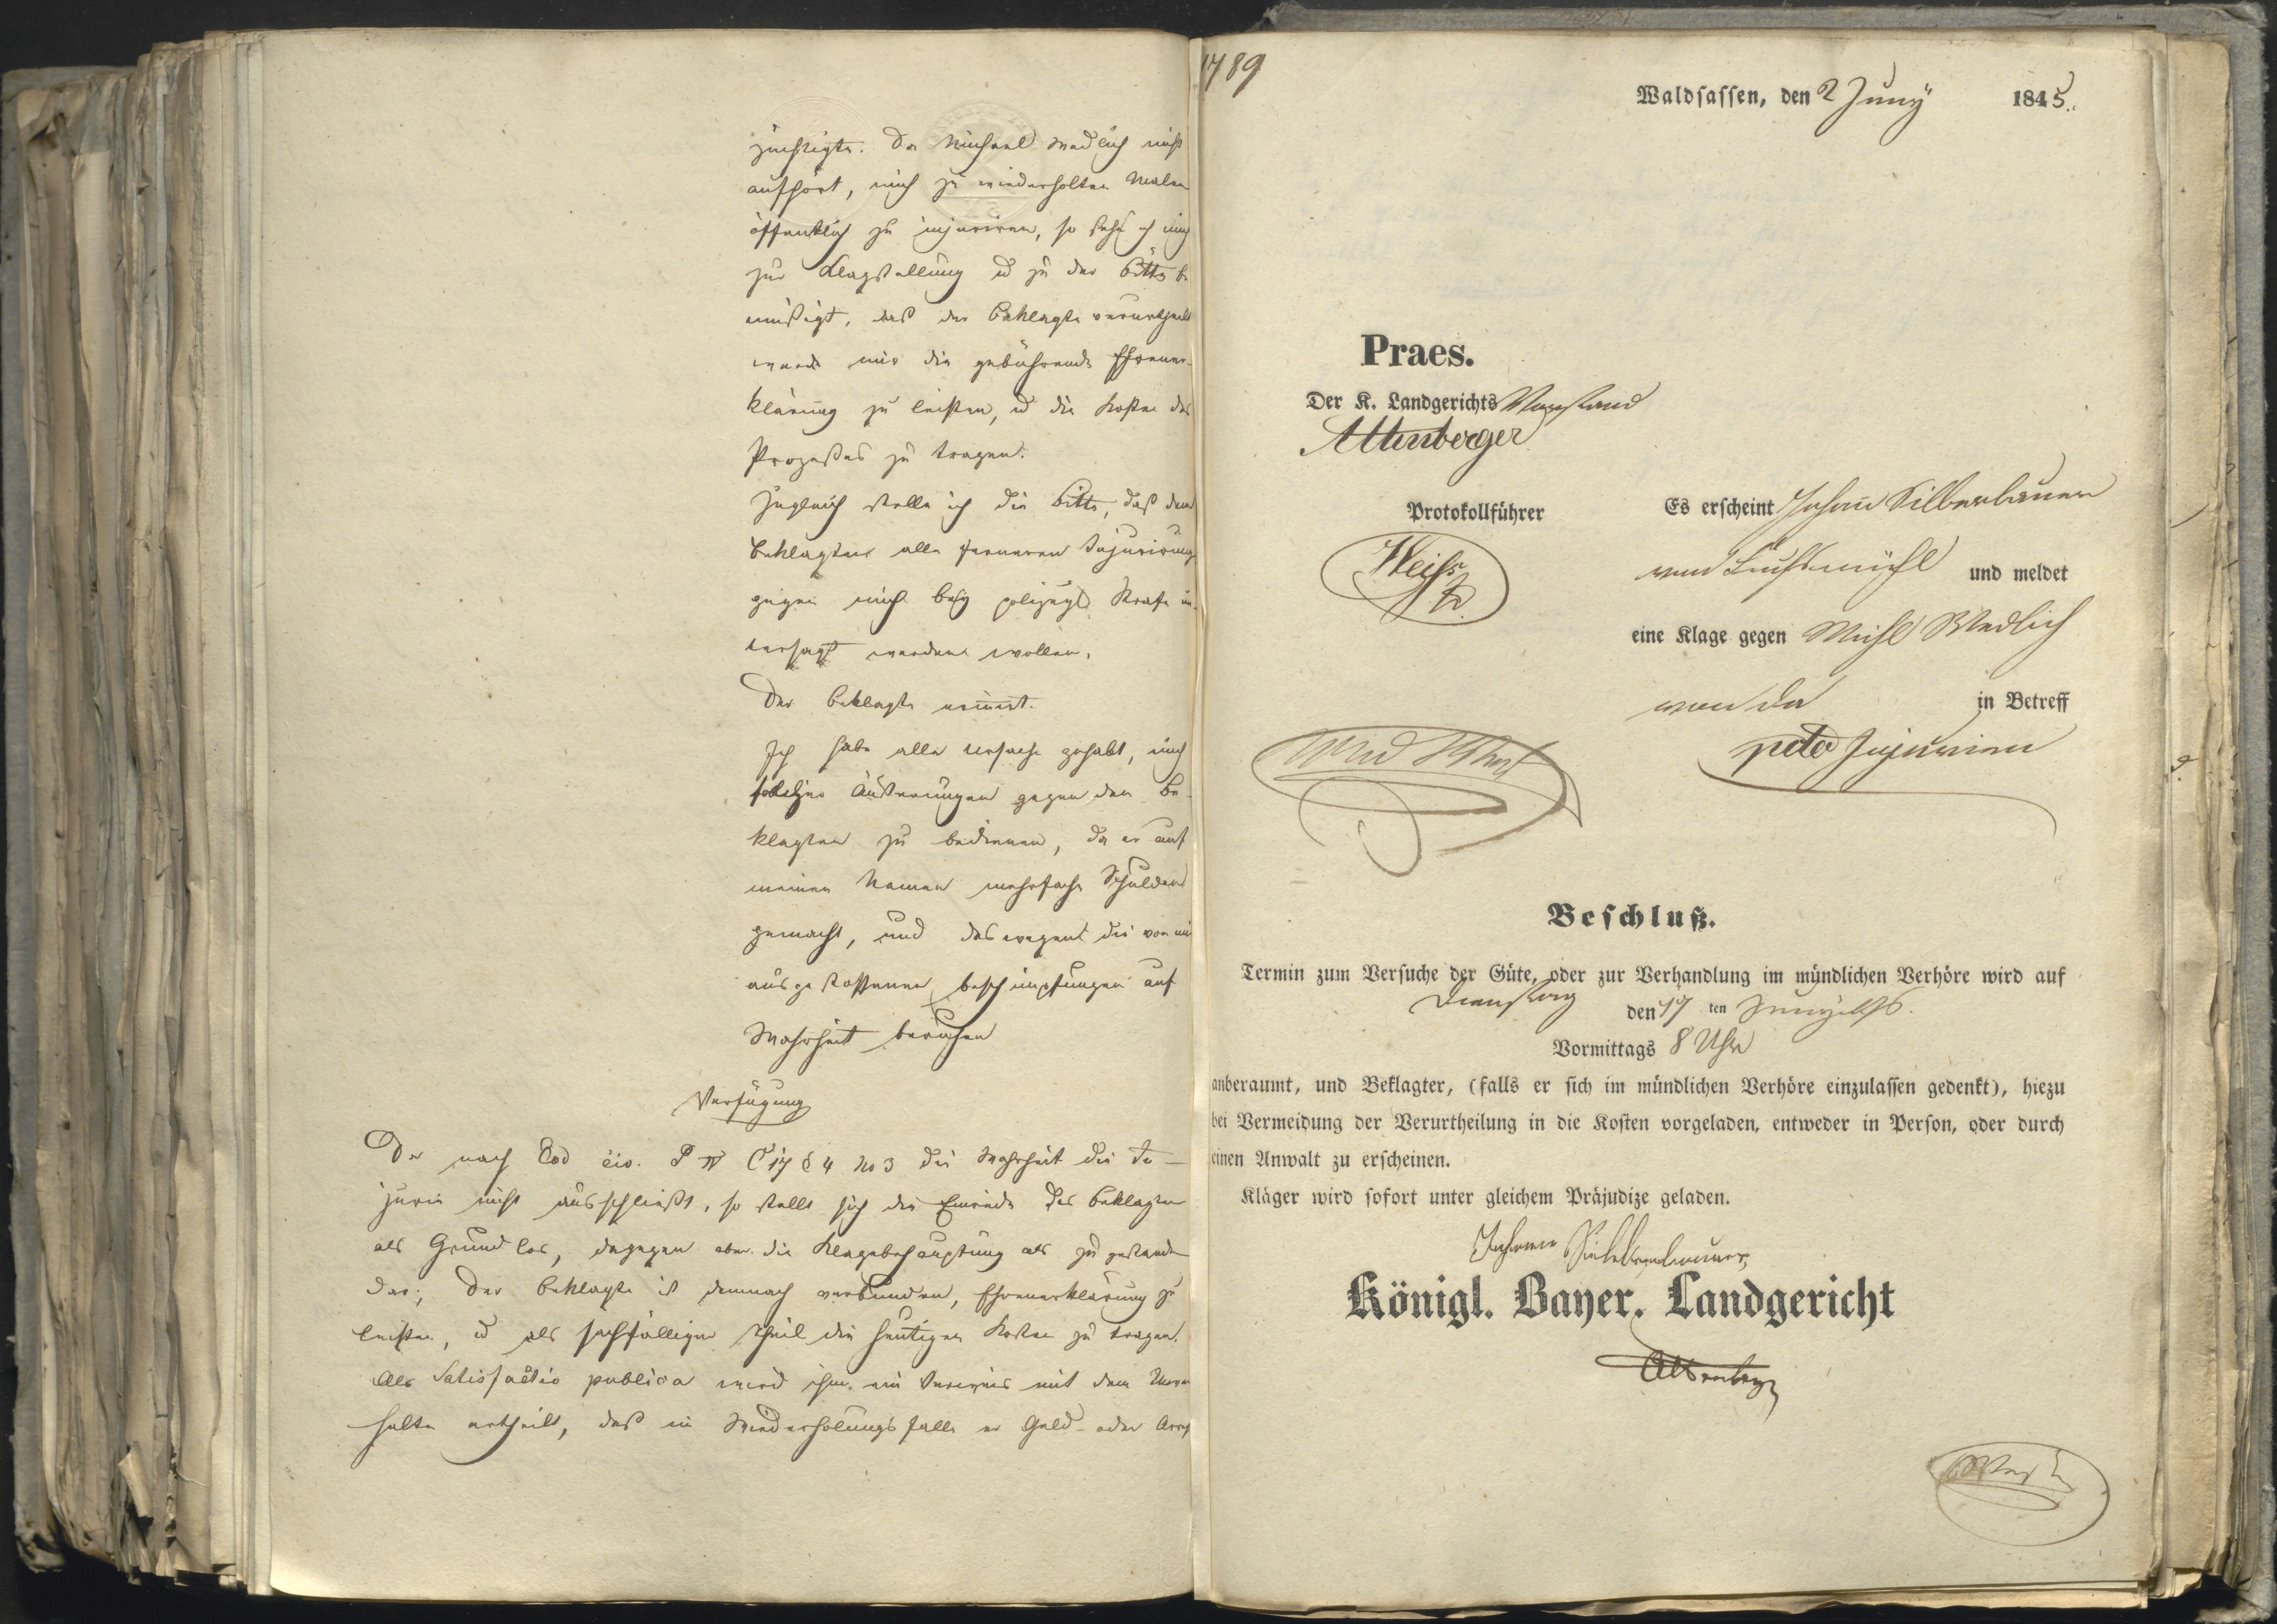 züchtigte. Da Michael Wedlich nicht
aufhört, mich zu wiederholten Malen
öffentlich zu injuriren, so sehe ich mich
zur Klagstellung u zu der Bitte be
müßigt, daß der Beklagte verurtheilt
werde mir die gebührende Ehrener-
klärung zu leisten, u die Kosten des
Prozeßes zu tragen.
Zugleich stelle ich die Bitte, daß dem
Beklagten alle ferneren Injurirung
gegen mich bey polizeyl Strafe un
tersagt werden wollen.
Der Beklagte erinnert.
Ich habe alle Ursache gehabt, mich
solcher Äußerungen gegen den Be-
klagten zu bedienen, da er auf
meinen Namen mehrfache Schulden
gemacht, und deswegen die von mir
ausgestossenen Beschimpfungen auf
Wahrheit beruhen
Verfügung
Da nach Cod civ. P IV C 17 § 4 No 3 die Wahrheit die In-
jurie nicht ausschließt, so stellt sich die Einrede des Beklagten
als Grundlos, dagegen aber die Klagebehauptung als zugestanden
dar; Der Beklagte ist demnach verbunden, Ehrenerklärung zu
leisten, u als sachfälliger Theil die heutigen Kosten zu tragen.
Als Satisfactio publica wird ihm ein Verweis mit dem
halte ertheilt, daß im Wiederholungsfalle er Geld- oder Arrest
1789
Waldsassen, den 2 Juny 1845.
Praes.
Der K. Landgerichts Vorstand
Altenberger
Protokollführer
Weiss
Es erscheint Johann Silberbauer
von und meldet
eine Klage gegen Michl Wedlich
von da in Betreff
pcto Injurien
Beschluß.
Termin zum Versuche der Güte, oder zur Verhandlung im mündlichen Verhöre wird auf
Dienstag den 17 ten Juny
Vormittags 8 Uhr
anberaumt, und Beklagter, (falls er sich im mündlichen Verhöre einzulassen gedenkt), hiezu
bei Vermeidung der Verurtheilung in die Kosten vorgeladen, entweder in Person, oder durch
einen Anwalt zu erscheinen.
Kläger wird sofort unter gleichem Präjudize geladen.
Johann
Königl. Bayer. Landgericht
Altenberger